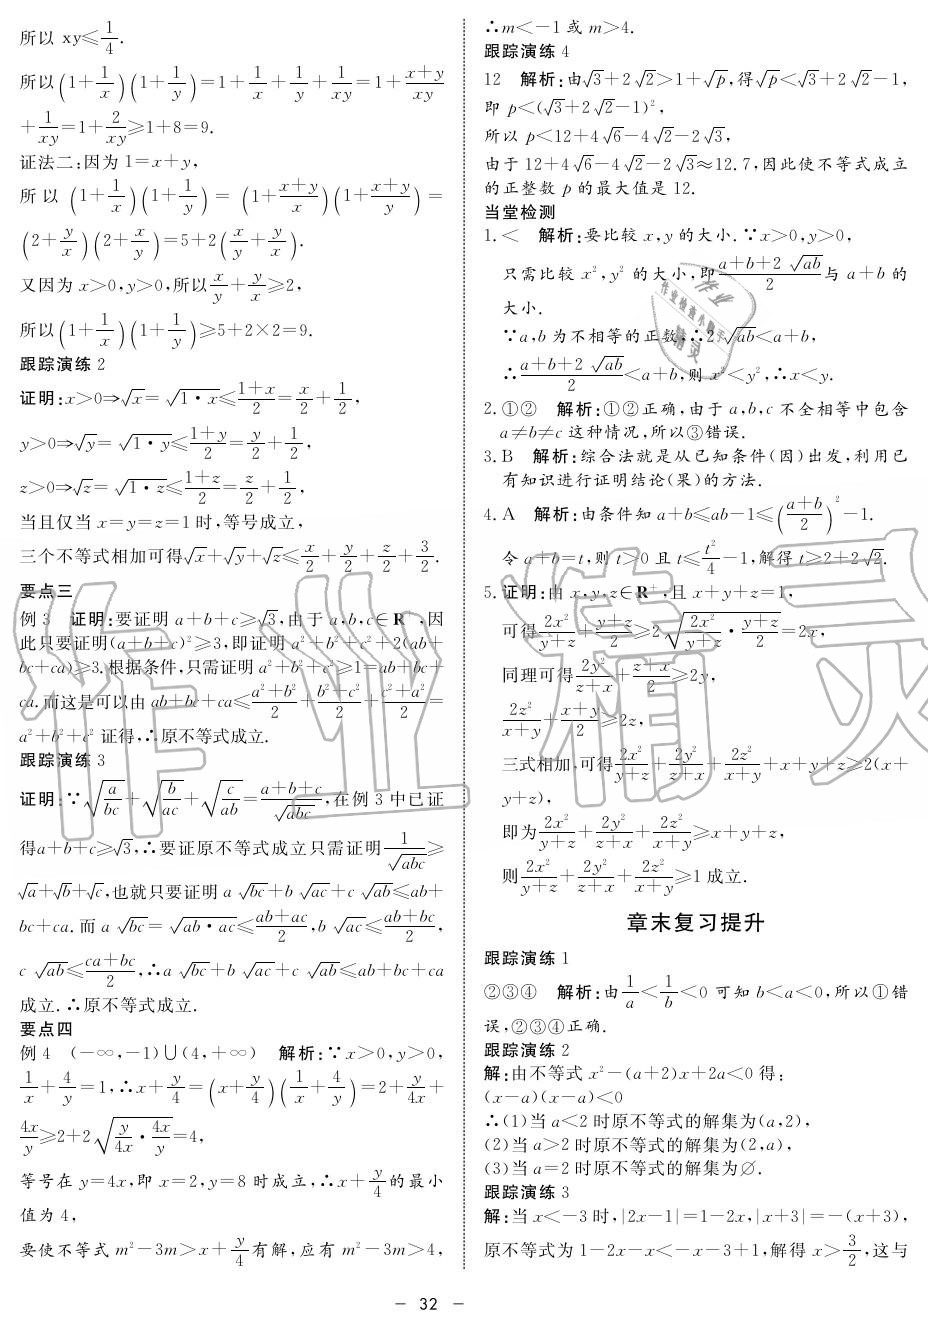 所以 xy≤1/4.
所以(1+1/x)(1+1/y)=1+1/x+1/y+1/xy=1+(x+y)/xy
+1/xy=1+2/xy≥1+8=9.
证法二:因为 1=x+y,
所以 (1+1/x)(1+1/y)=(1+(x+y)/x)(1+(x+y)/y)=
(2+y/x)(2+x/y)=5+2(x/y+y/x).
又因为 x>0,y>0,所以x/y+y/x≥2,
所以(1+1/x)(1+1/y)≥5+2×2=9.
跟踪演练 2
证明:x>0⇒√x=√(1·x)≤(1+x)/2=x/2+1/2,
y>0⇒√y=√(1·y)≤(1+y)/2=y/2+1/2,
z>0⇒√z=√(1·z)≤(1+z)/2=z/2+1/2,
当且仅当 x=y=z=1 时,等号成立,
三个不等式相加可得√x+√y+√z≤x/2+y/2+z/2+3/2.
要点三
例 3 证明:要证明 a+b+c≥√3,由于 a,b,c∈R⁺,因
此只要证明(a+b+c)²≥3,即证明 a²+b²+c²+2(ab+
bc+ca)≥3.根据条件,只需证明 a²+b²+c²≥1=ab+bc+
ca.而这是可以由 ab+bc+ca≤(a²+b²)/2+(b²+c²)/2+(c²+a²)/2=
a²+b²+c² 证得,∴原不等式成立.
跟踪演练 3
证明:∵√(a/bc)+√(b/ac)+√(c/ab)=(a+b+c)/√(abc),在例 3 中已证
得a+b+c≥√3,∴要证原不等式成立只需证明1/√(abc)≥
√a+√b+√c,也就只要证明 a√(bc)+b√(ac)+c√(ab)≤ab+
bc+ca.而 a√(bc)=√(ab·ac)≤(ab+ac)/2,b√(ac)≤(ab+bc)/2,
c√(ab)≤(ca+bc)/2,∴a√(bc)+b√(ac)+c√(ab)≤ab+bc+ca
成立.∴原不等式成立.
要点四
例 4 (-∞,-1)∪(4,+∞) 解析:∵x>0,y>0,
1/x+4/y=1,∴x+y/4=(x+y/4)(1/x+4/y)=2+y/4x+
4x/y≥2+2√(y/4x·4x/y)=4,
等号在 y=4x,即 x=2,y=8 时成立,∴x+y/4的最小
值为 4,
要使不等式 m²-3m>x+y/4有解,应有 m²-3m>4,
∴m<-1 或 m>4.
跟踪演练 4
12 解析:由√3+2√2>1+√p,得√p<√3+2√2-1,
即 p<(√3+2√2-1)²,
所以 p<12+4√6-4√2-2√3,
由于 12+4√6-4√2-2√3≈12.7,因此使不等式成立
的正整数 p 的最大值是 12.
当堂检测
1.< 解析:要比较 x,y 的大小.∵x>0,y>0,
只需比较 x²,y² 的大小,即(a+b+2√(ab))/2与 a+b 的
大小.
∵a,b 为不相等的正数,∴2√(ab)<a+b,
∴(a+b+2√(ab))/2<a+b,则 x²<y²,∴x<y.
2.①② 解析:①②正确,由于 a,b,c 不全相等中包含
a≠b≠c 这种情况,所以③错误.
3.B 解析:综合法就是从已知条件(因)出发,利用已
有知识进行证明结论(果)的方法.
4.A 解析:由条件知 a+b≤ab-1≤((a+b)/2)²-1.
令 a+b=t,则 t>0 且 t≤t²/4-1,解得 t≥2+2√2.
5.证明:由 x,y,z∈R⁺,且 x+y+z=1,
可得2x²/(y+z)+(y+z)/2≥2√(2x²/(y+z)·(y+z)/2)=2x,
同理可得2y²/(z+x)+(z+x)/2≥2y,
2z²/(x+y)+(x+y)/2≥2z,
三式相加,可得2x²/(y+z)+2y²/(z+x)+2z²/(x+y)+x+y+z≥2(x+
y+z),
即为2x²/(y+z)+2y²/(z+x)+2z²/(x+y)≥x+y+z,
则2x²/(y+z)+2y²/(z+x)+2z²/(x+y)≥1 成立.
章末复习提升
跟踪演练 1
②③④ 解析:由1/a<1/b<0 可知 b<a<0,所以①错
误,②③④正确.
跟踪演练 2
解:由不等式 x²-(a+2)x+2a<0 得:
(x-a)(x-a)<0
∴(1)当 a<2 时原不等式的解集为(a,2),
(2)当 a>2 时原不等式的解集为(2,a),
(3)当 a=2 时原不等式的解集为∅.
跟踪演练 3
解:当 x<-3 时,|2x-1|=1-2x,|x+3|=-(x+3),
原不等式为 1-2x-x<-x-3+1,解得 x>3/2,这与
- 32 -
作业精灵